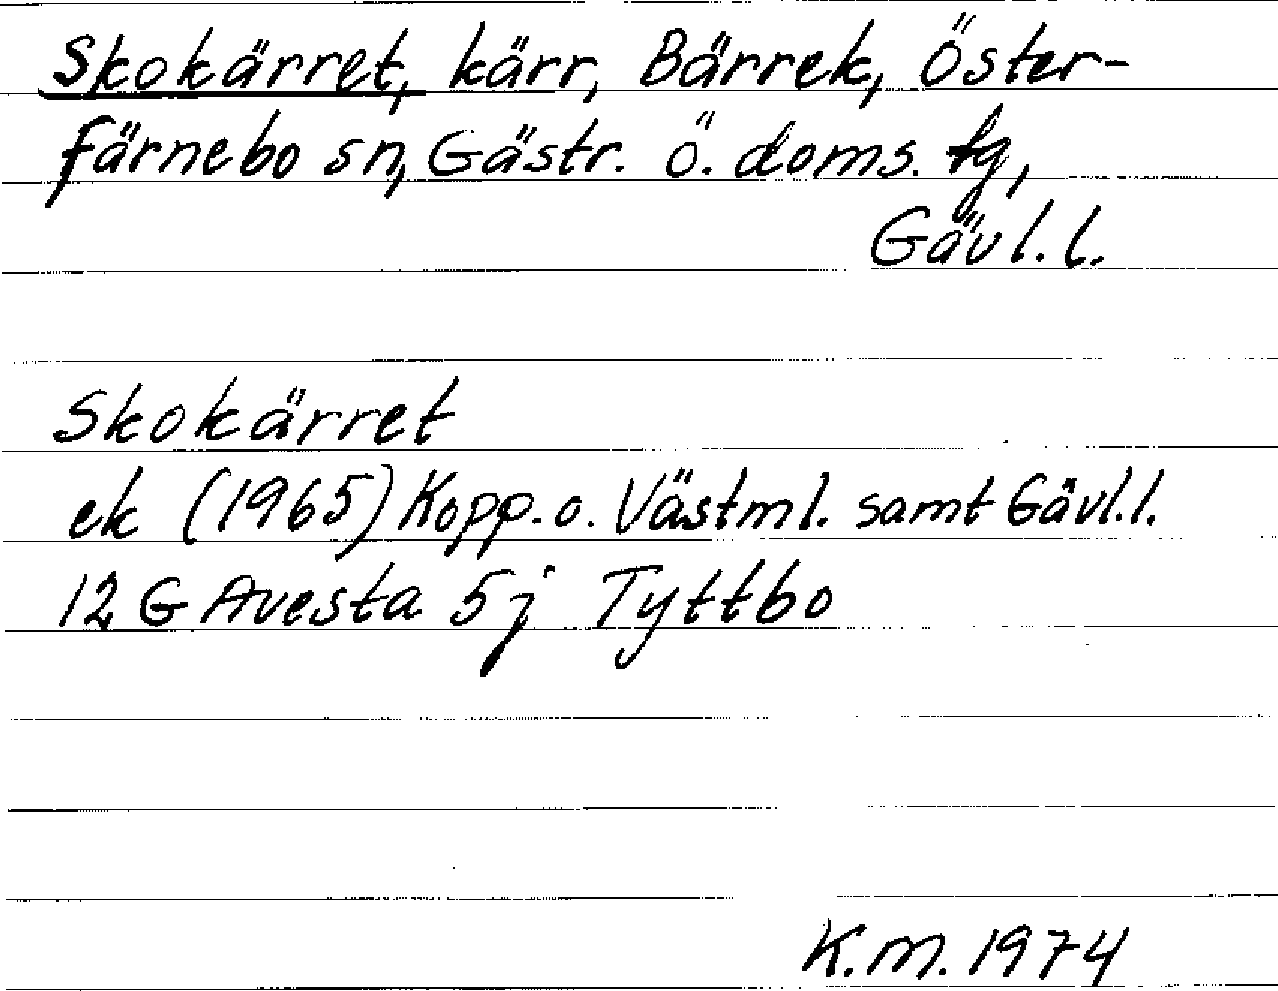 Skokärret, kärr, Bärrek, Öster-
färnebo sn, Gästr. ö. doms. tg,
Gävl.l.
Skokärret
ek (1965) Kopp. o. Västml. samt Gävl.l.
12 G Avesta 5j Tyttbo
K.M. 1974